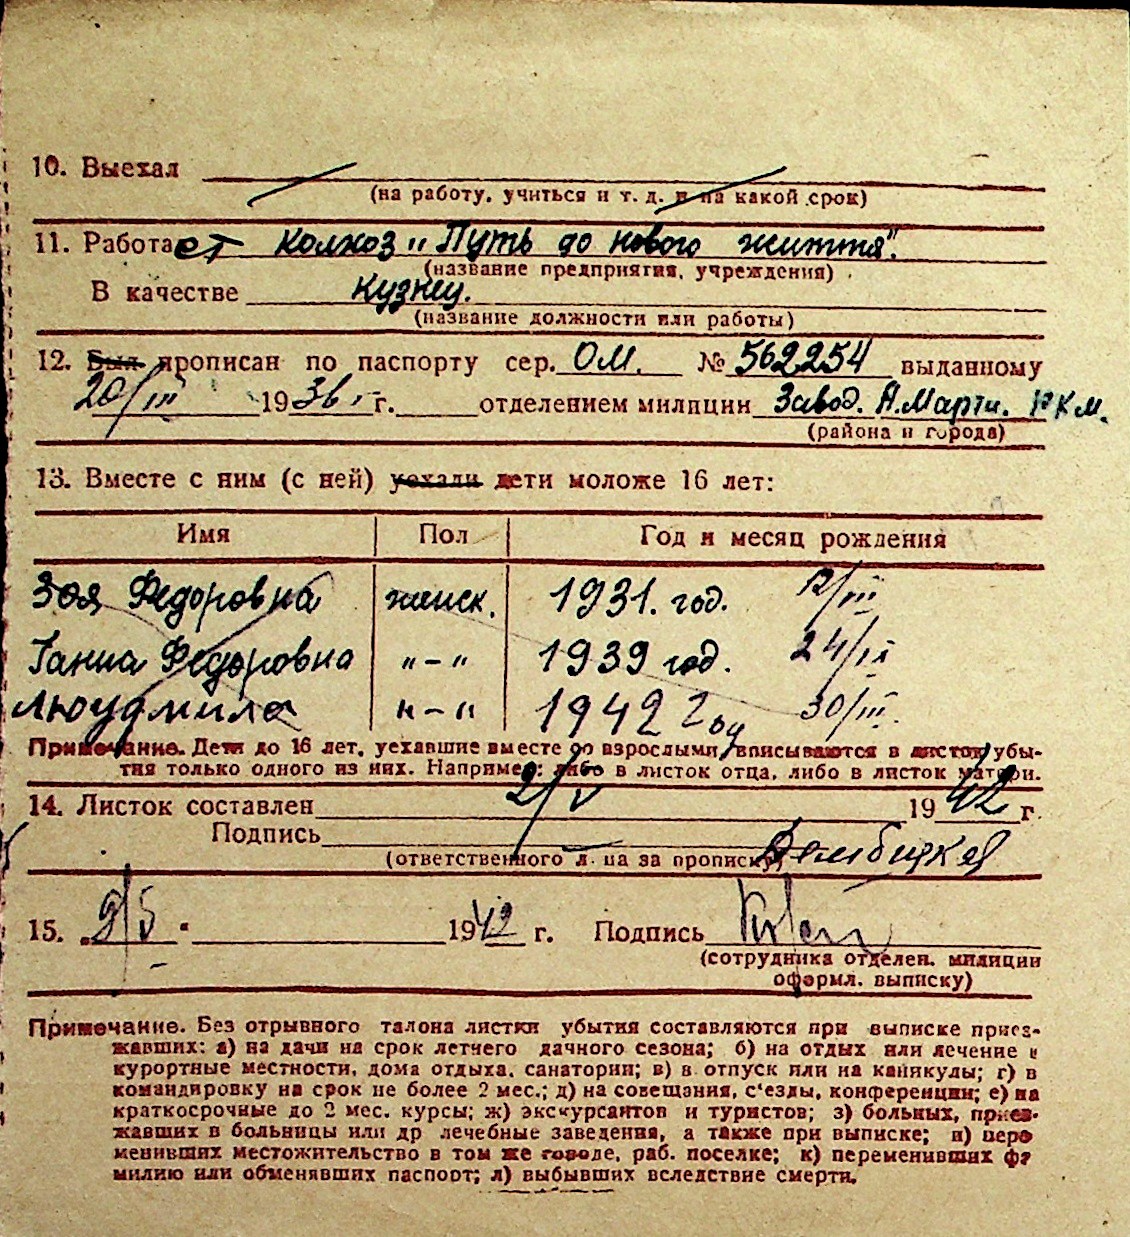 10. Выехал
(на работу, учиться и т. д. и на какой срок)
11. Работает колхоз „Путь до нового життя".
(название предприятия, учреждения)
В качестве кузнец.
(название должности или работы)
12. Был прописан по паспорту сер. ОМ. № 562254 выданному
20/III 1936 г. отделением милиции Завод. А. Марти. РКМ.
(района и города)
13. Вместе с ним (с ней) уехали дети моложе 16 лет:
Имя Пол Год и месяц рождения
Зоя Федоровна женск. 1931. год. 12/III
Ганна Федоровна "–" 1939 год. 24/IX
Людмила "–" 1942 год 30/III.
Примечание. Дети до 16 лет, уехавшие вместе со взрослыми, вписываются в листок убы-
тия только одного из них. Например: либо в листок отца, либо в листок матери.
14. Листок составлен 2/V 1942 г.
Подпись
(ответственного л-ца за прописку)
15. „2/5" 1942 г. Подпись
(сотрудника отделен. милиции
оформл. выписку)
Примечание. Без отрывного талона листки убытия составляются при выписке приез-
жавших: а) на дачи на срок летнего дачного сезона; б) на отдых или лечение в
курортные местности, дома отдыха, санатории; в) в отпуск или на каникулы; г) в
командировку на срок не более 2 мес.; д) на совещания, с'езды, конференции; е) на
краткосрочные до 2 мес. курсы; ж) экскурсантов и туристов; з) больных, приез-
жавших в больницы или др лечебные заведения, а также при выписке; и) пере
менивших местожительство в том же городе, раб. поселке; к) переменивших фа
милию или обменявших паспорт; л) выбывших вследствие смерти.